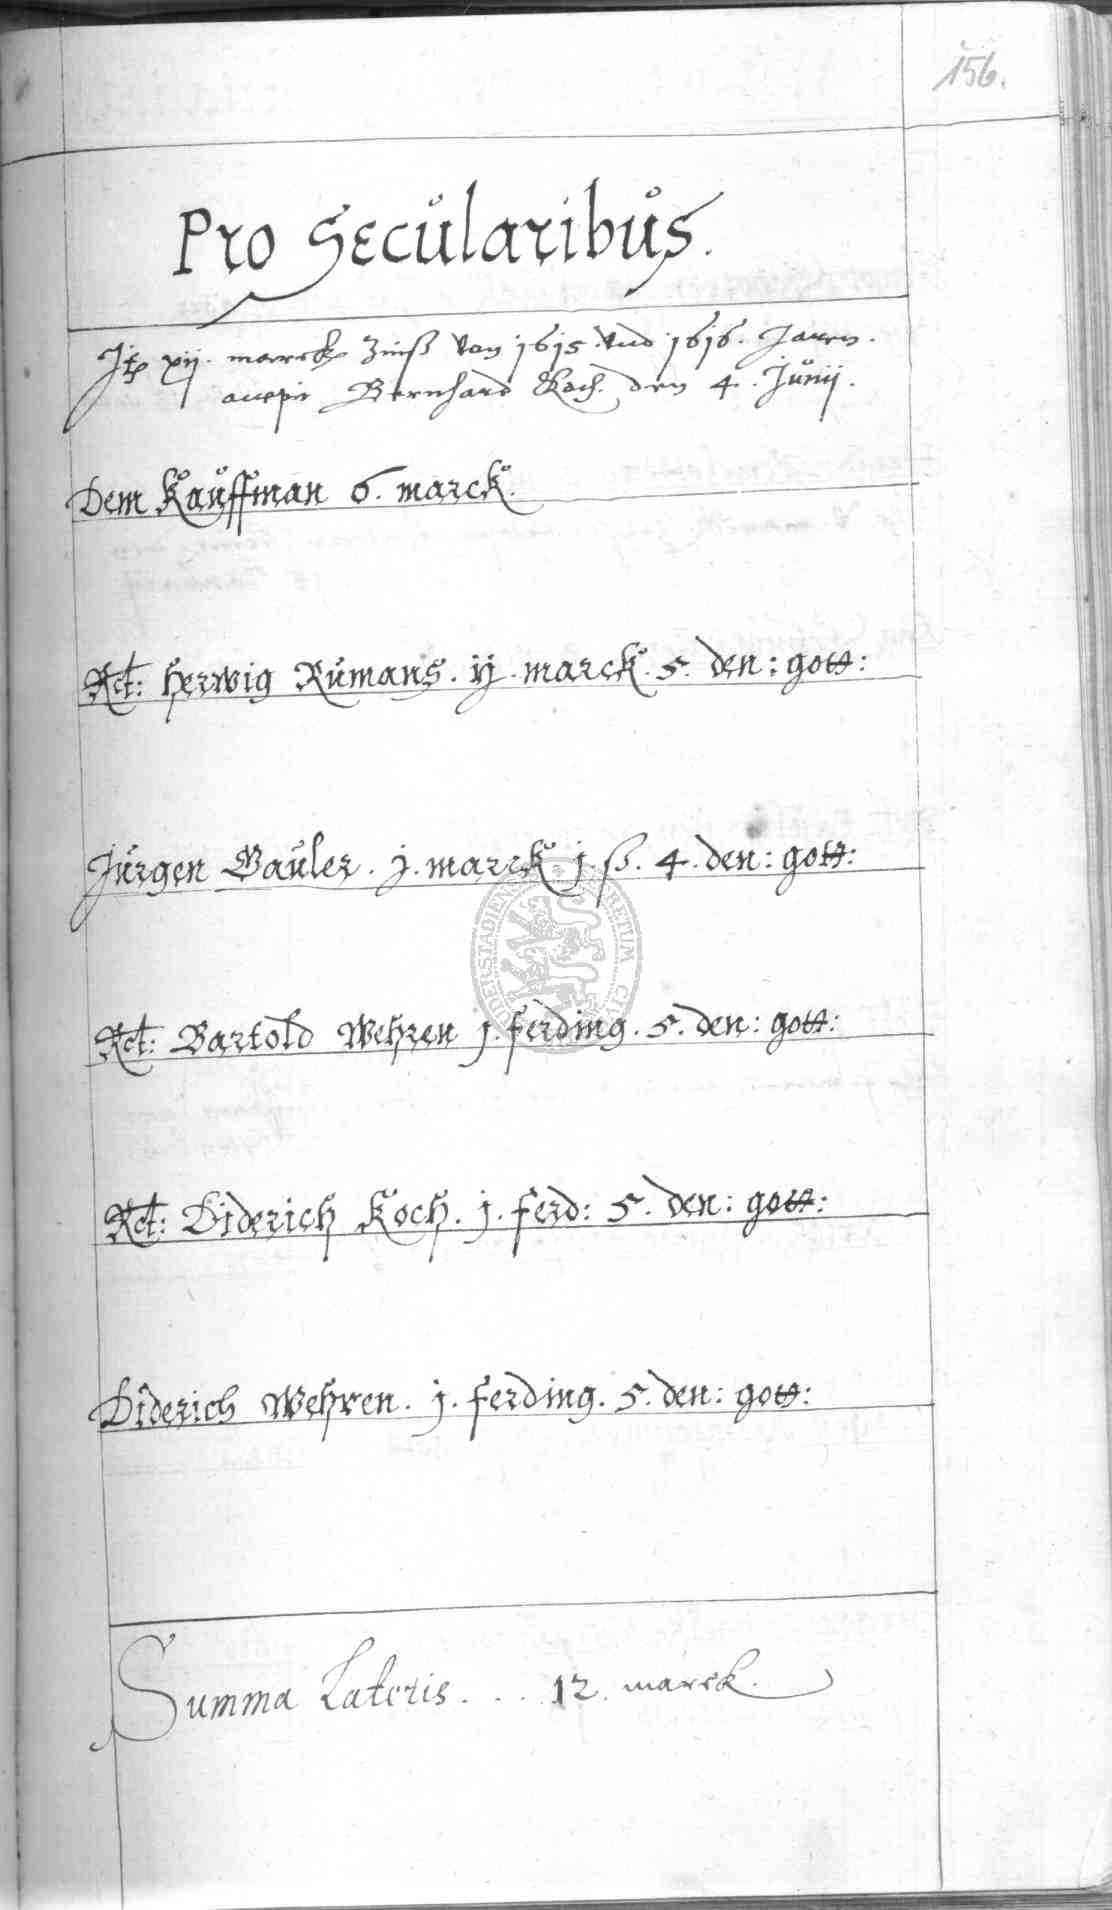 156.
Pro Secularibus.
Jt xij. marck Zinß von 1615. vnd 1616. Jaren.
accepi Bernhard Koch. den 4. Junij.
Dem Kauffman 6. marck.
Rct: Herwig Rumans. ij. marck. 5. den: gott:
Jurgen Bauler. j. marck j. ß. 4. den: gott:
Rct: Bartold Wehren j. ferding. 5. den: gott:
Rct: Diderich Koch. j. ferd: 5. den: gott:
Diderich Wehren. j. ferding. 5. den: gott:
Summa Lateris . . . 12. marck.